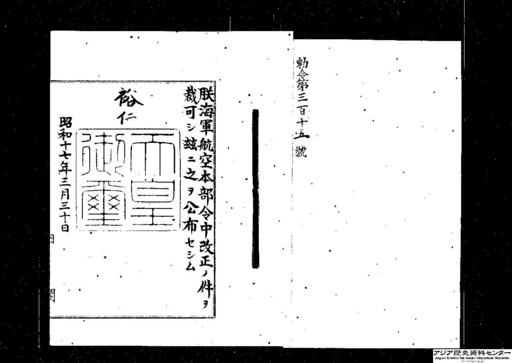 勅令第三百十五號
朕海軍航空本部令中改正ノ件ヲ
裁可シ茲ニ之ヲ公布セシム
裕仁
天皇
御璽
昭和十七年三月三十日
アジア歴史資料センター
Japan Center for Asian Historical Records